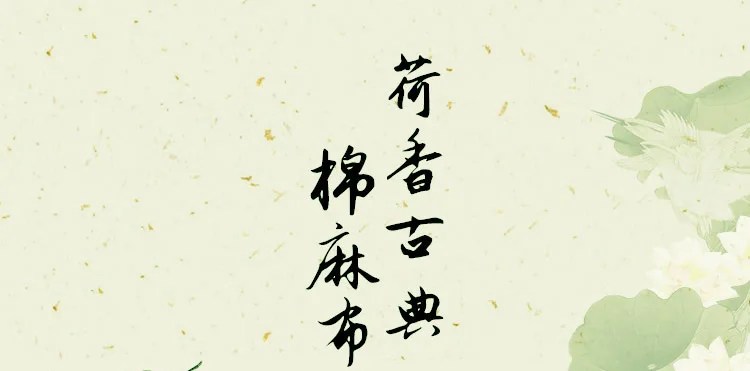 荷香古典
棉麻布